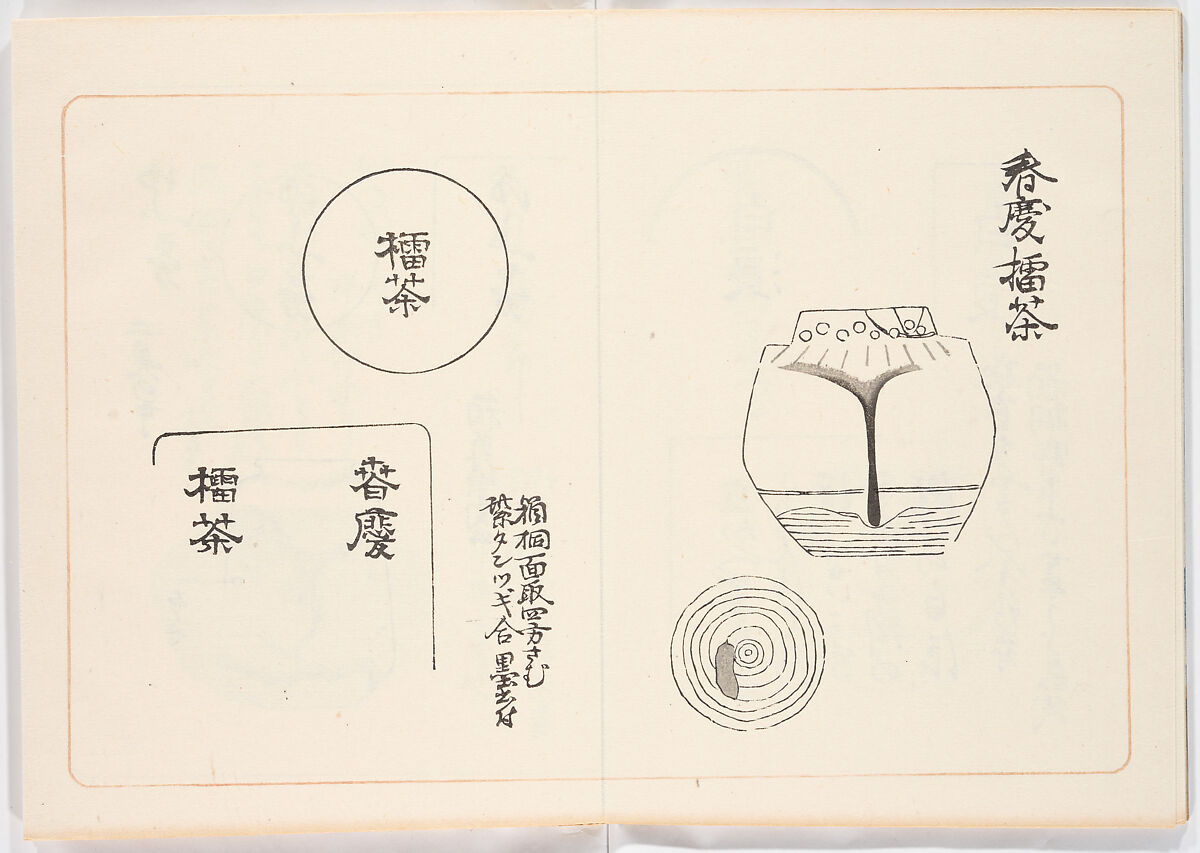 春慶擂茶
檑茶
箱桐面取四方さむ
紫タンツギ合 墨書付
春慶
檑茶